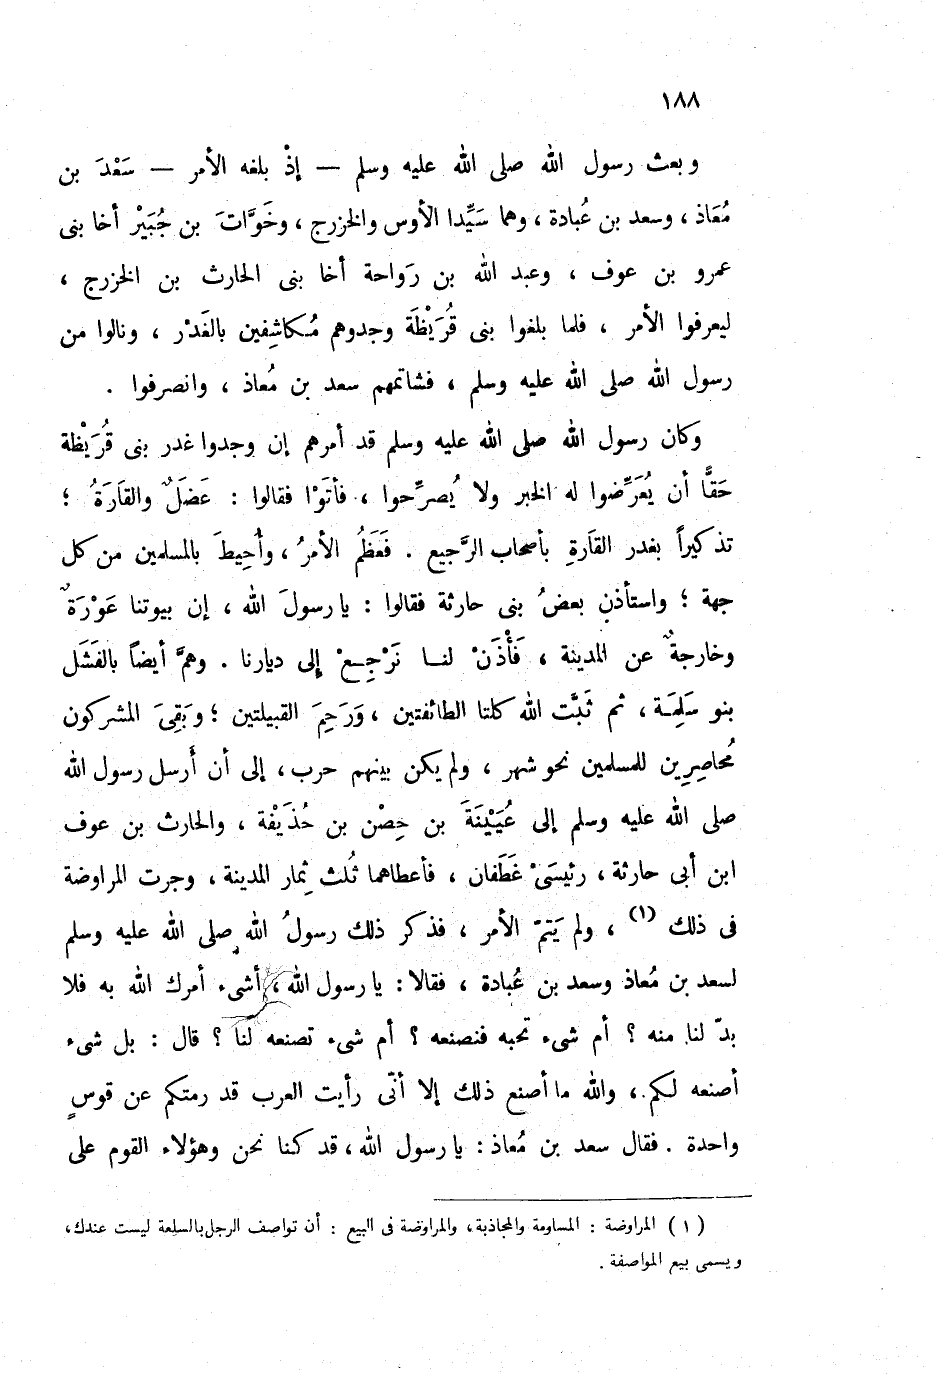 ١٨٨
وبعث رسول الله صلى الله عليه وسلم — إذْ بلغه الأمر — سَعْدَ بن
مُعَاذ ، وسعد بن عُبادة ، وهما سَيِّدا الأوس والخزرج ، وخَوَّاتَ بن جُبَيْر أخا بنى
عمرو بن عوف ، وعبد الله بن رَواحة أخا بنى الحارث بن الخزرج ،
ليعرفوا الأمر ، فلما بلغوا بنى قُرَيْظَة وجدوهم مُكاشِفين بالغَدْر ، ونالوا من
رسول الله صلى الله عليه وسلم ، فشاتمهم سعد بن مُعاذ ، وانصرفوا .
وكان رسول الله صلى الله عليه وسلم قد أمرهم إن وجدوا غدر بنى قُرَيْظة
حَقًّا أن يُعَرِّضوا له الخبر ولا يُصرِّحوا ، فأتَوْا فقالوا : عَضَلٌ والقَارَةُ ؛
تذكيراً بغدر القَارةِ بأصحاب الرَّجيع . فَعَظُم الأمرُ ، وأُحِيطَ بالمسلمين من كل
جهة ؛ واستأذن بعضُ بنى حارثة فقالوا : يا رسولَ الله ، إن بيوتنا عَوْرَةٌ
وخارجةٌ عن المدينة ، فَأْذَنْ لنا نَرْجِعْ إلى ديارنا . وهمَّ أيضاً بالفَشَل
بنو سَلِمَة ، ثم ثَبَّت الله كلتا الطائفتين ، وَرَحِمَ القبيلتين ؛ وبَقِىَ المشركون
مُحاصِرِين للمسلمين نحو شهر ، ولم يكن بينهم حرب ، إلى أن أَرسل رسول الله
صلى الله عليه وسلم إلى عُيَيْنَةَ بن حِصْن بن حُذَيْفة ، والحارث بن عوف
ابن أبى حارثة ، رئيسَىْ غَطَفان ، فأعطاهما ثُلث ثِمار المدينة ، وجرت المراوضة
فى ذلك (١) ، ولم يَتمّ الأمر ، فذكر ذلك رسولُ الله صلى الله عليه وسلم
لسعد بن مُعاذ وسعد بن عُبادة ، فقالا : يا رسول الله ، أشىء أمرك الله به فلا
بدّ لنا منه ؟ أم شىء تحبه فنصنعه ؟ أم شىء تصنعه لنا ؟ قال : بل شىء
أصنعه لكم ، والله ما أصنع ذلك إلا أنّى رأيت العرب قد رمتكم عن قوسٍ
واحدة . فقال سعد بن مُعاذ : يا رسول الله ، قد كنا نحن وهؤلاء القوم على
(١) المراوضة : المساومة والمجاذبة ، والمراوضة فى البيع : أن تواصف الرجل بالسلعة ليست عندك ،
ويسمى بيع المواصفة .